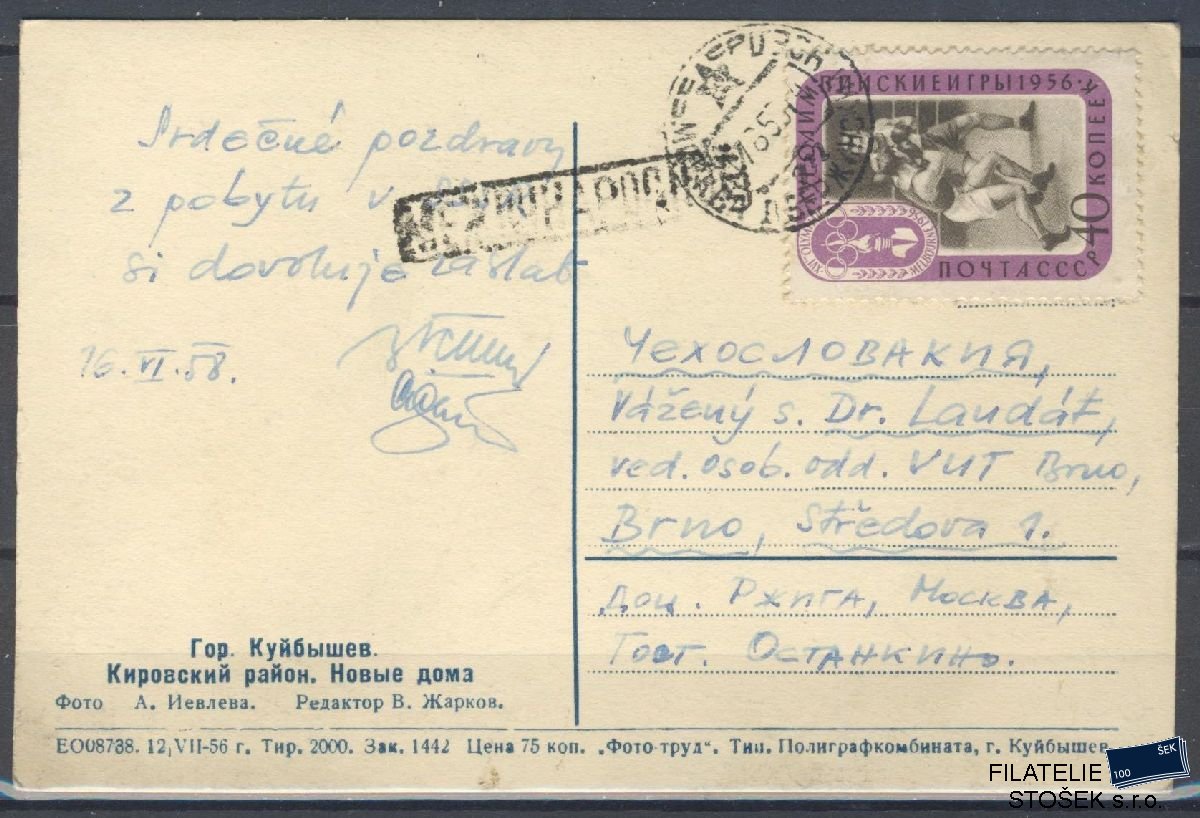 Srdečné pozdravy
z pobytu v
si dovoluje zaslat
16.VI.58.
МЕЖДУНАРОДН
ОЛИМПИЙСКИЕ ИГРЫ 1956 г.
40 КОПЕЕК
ПОЧТА СССР
ЧЕХОСЛОВАКИЯ,
Vážený s. Dr. Laudát,
ved. osob. odd. VUT Brno,
Brno, Středova 1.
Доц. Ржига, Москва,
Гост. Останкино.
Гор. Куйбышев.
Кировский район. Новые дома
Фото А. Иевлева. Редактор В. Жарков.
ЕО08738. 12/VII-56 г. Тир. 2000. Зак. 1442 Цена 75 коп. „Фото-труд“. Тип. Полиграфкомбината, г. Куйбышев
100 ŠEK
FILATELIE
STOŠEK s.r.o.